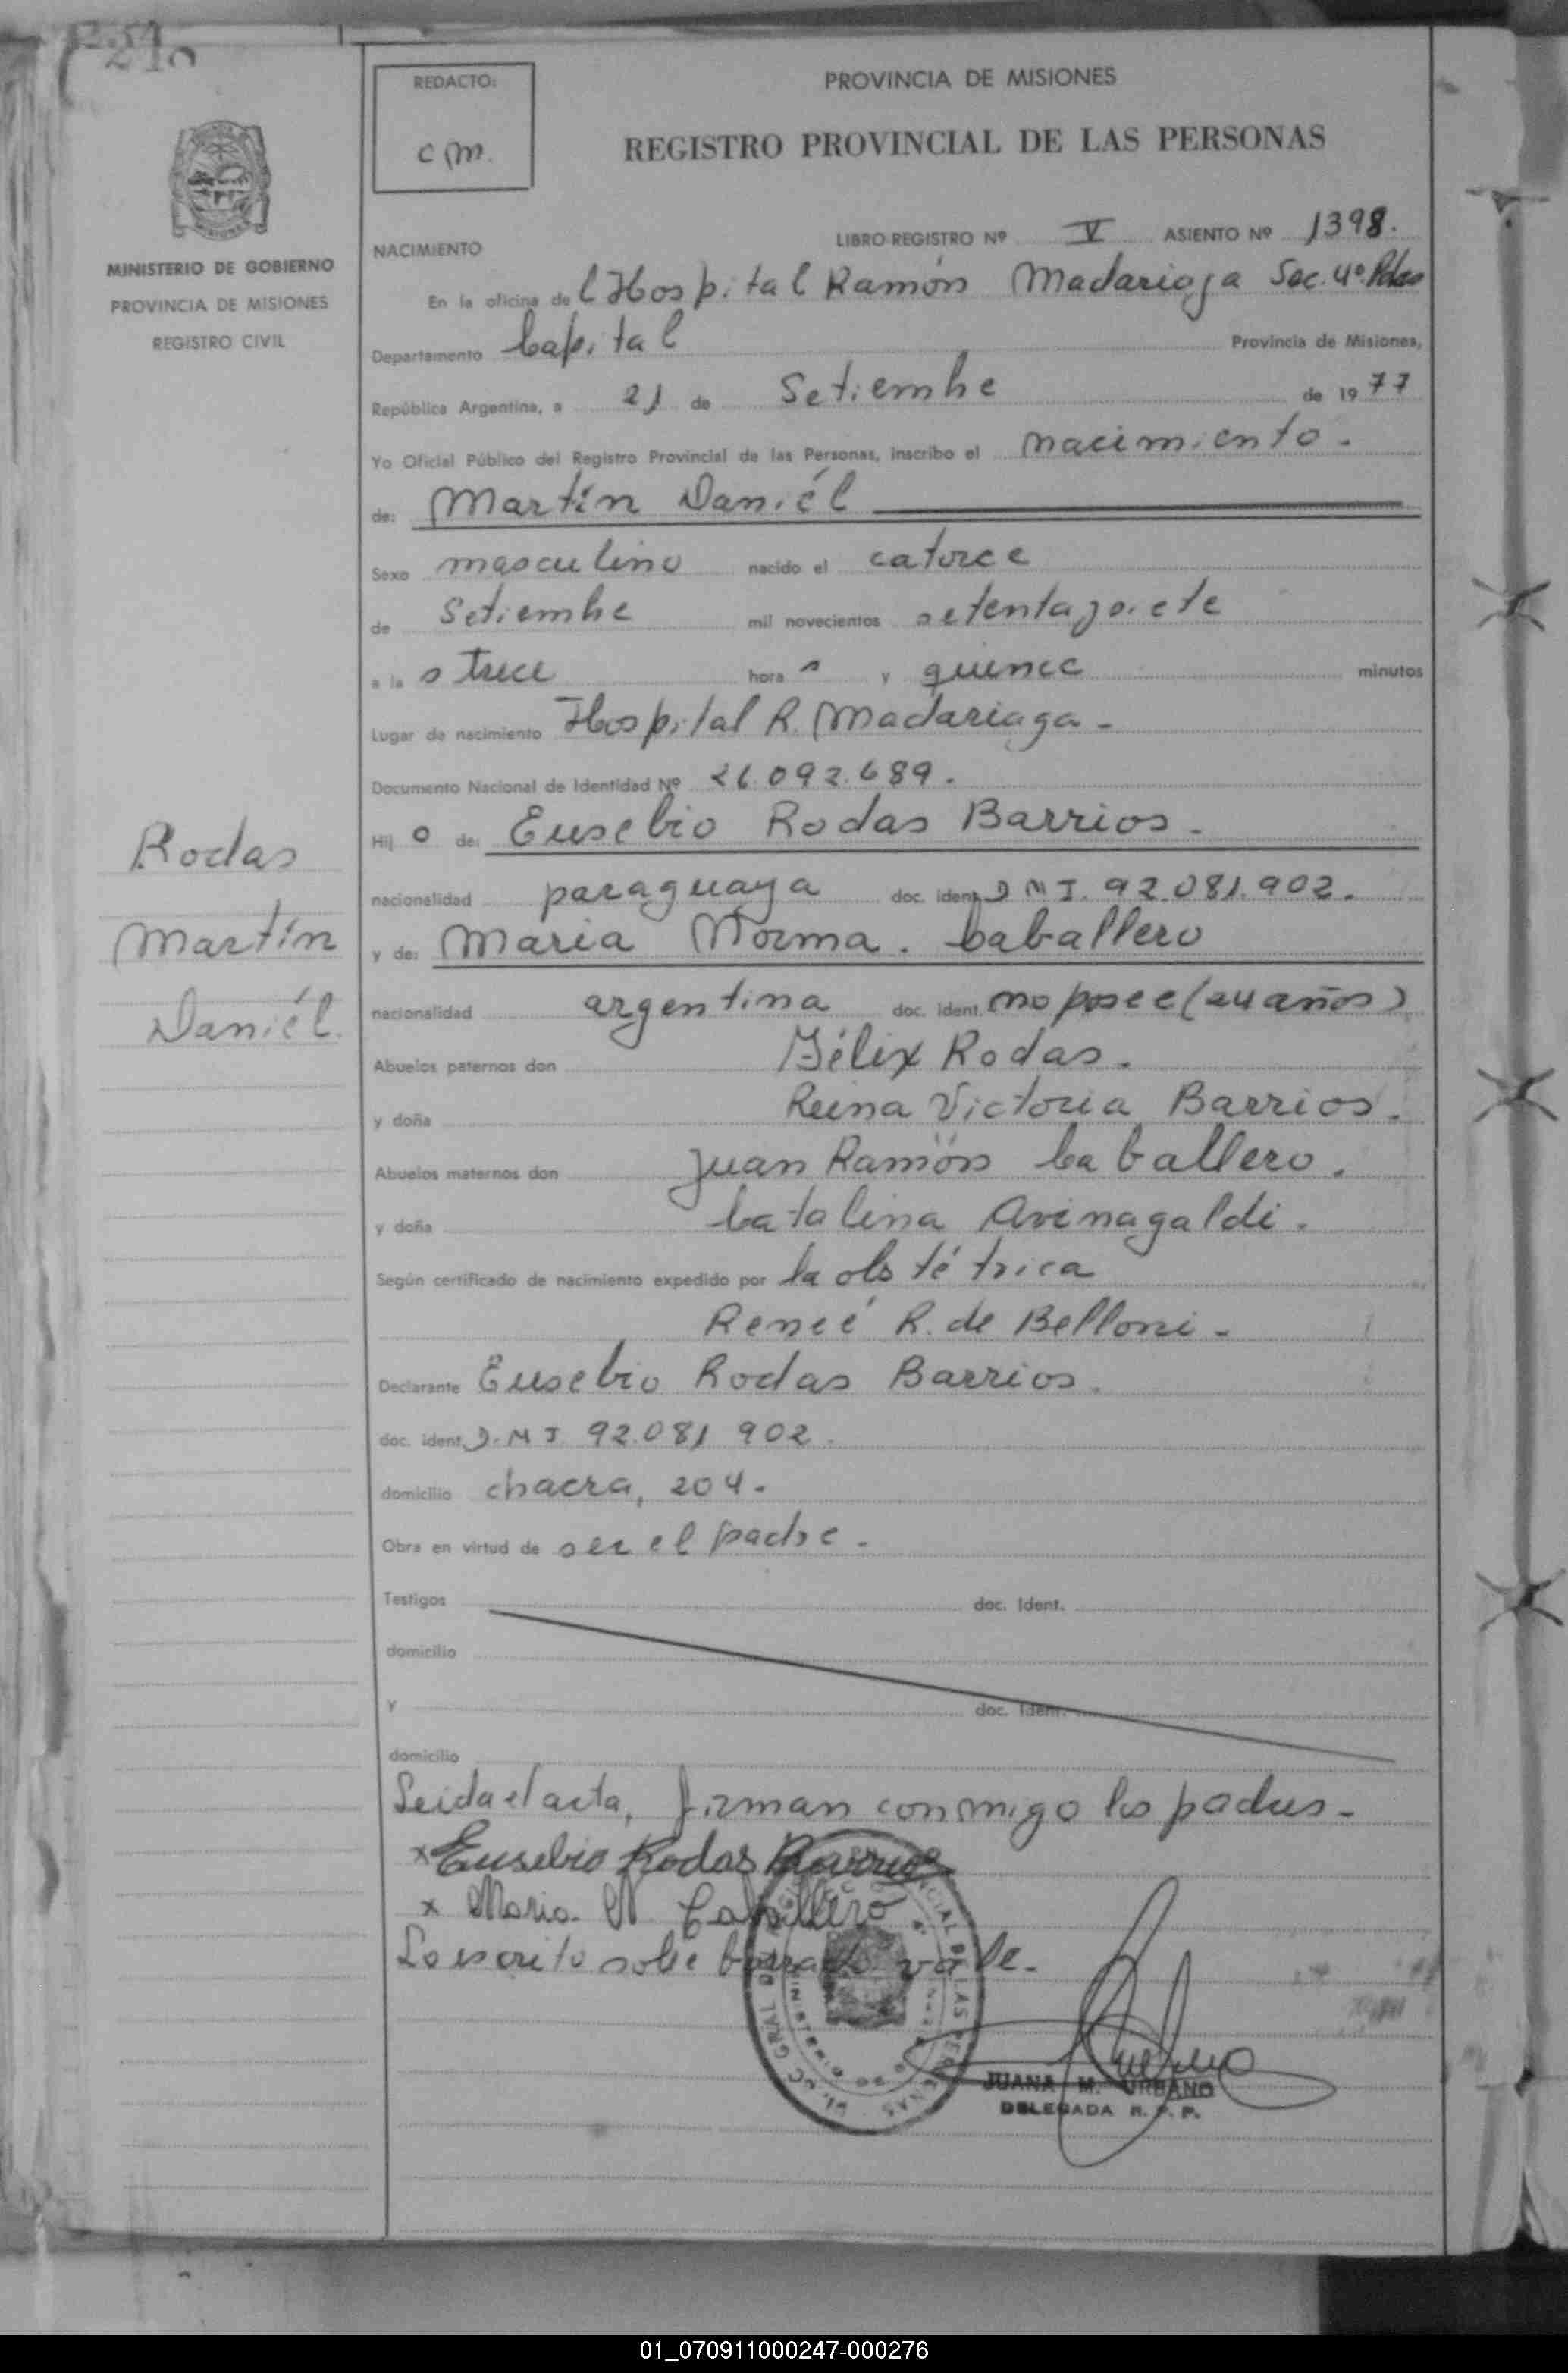 240
REDACTO:
CM.
PROVINCIA DE MISIONES
REGISTRO PROVINCIAL DE LAS PERSONAS
MINISTERIO DE GOBIERNO
PROVINCIA DE MISIONES
REGISTRO CIVIL
NACIMIENTO
LIBRO REGISTRO Nº V ASIENTO Nº 1398.
En la oficina del Hospital Ramón Madariaga Sec. 4º. Pdas
Departamento Capital Provincia de Misiones,
República Argentina, a 21 de Setiembre de 1977
Yo Oficial Público del Registro Provincial de las Personas, inscribo el nacimiento.
de: Martín Daniél
Sexo masculino nacido el catorce
de Setiembre mil novecientos setentaysiete
a las trece horas y quince minutos
Lugar de nacimiento Hospital R. Madariaga-
Documento Nacional de Identidad Nº 26.092.689.
Hijo de: Eusebio Rodas Barrios.
nacionalidad paraguaya doc. ident. DNI. 92.081.902.
y de: Maria Norma. Caballero
nacionalidad argentina doc. ident. no posee (24 años)
Abuelos paternos don Félix Rodas.
y doña Reina Victoria Barrios.
Abuelos maternos don Juan Ramón Caballero.
y doña Catalina Avinagaldi.
Según certificado de nacimiento expedido por la obstétrica
Reneé R. de Belloni-
Declarante Eusebio Rodas Barrios.
doc. ident. D.N I. 92.081 902.
domicilio chacra, 204-
Obra en virtud de ser el padre-
Testigos doc. Ident.
domicilio
y doc. Ident.
domicilio
Leida el acta, firman conmigo los padres-
x Eusebio Rodas Barrios
x Maria N Caballero
Lo escrito sobre borrado vale-
Rodas
Martín
Daniél.
JUANA M. URBANO
DELEGADA R. P. P.
01_070911000247-000276